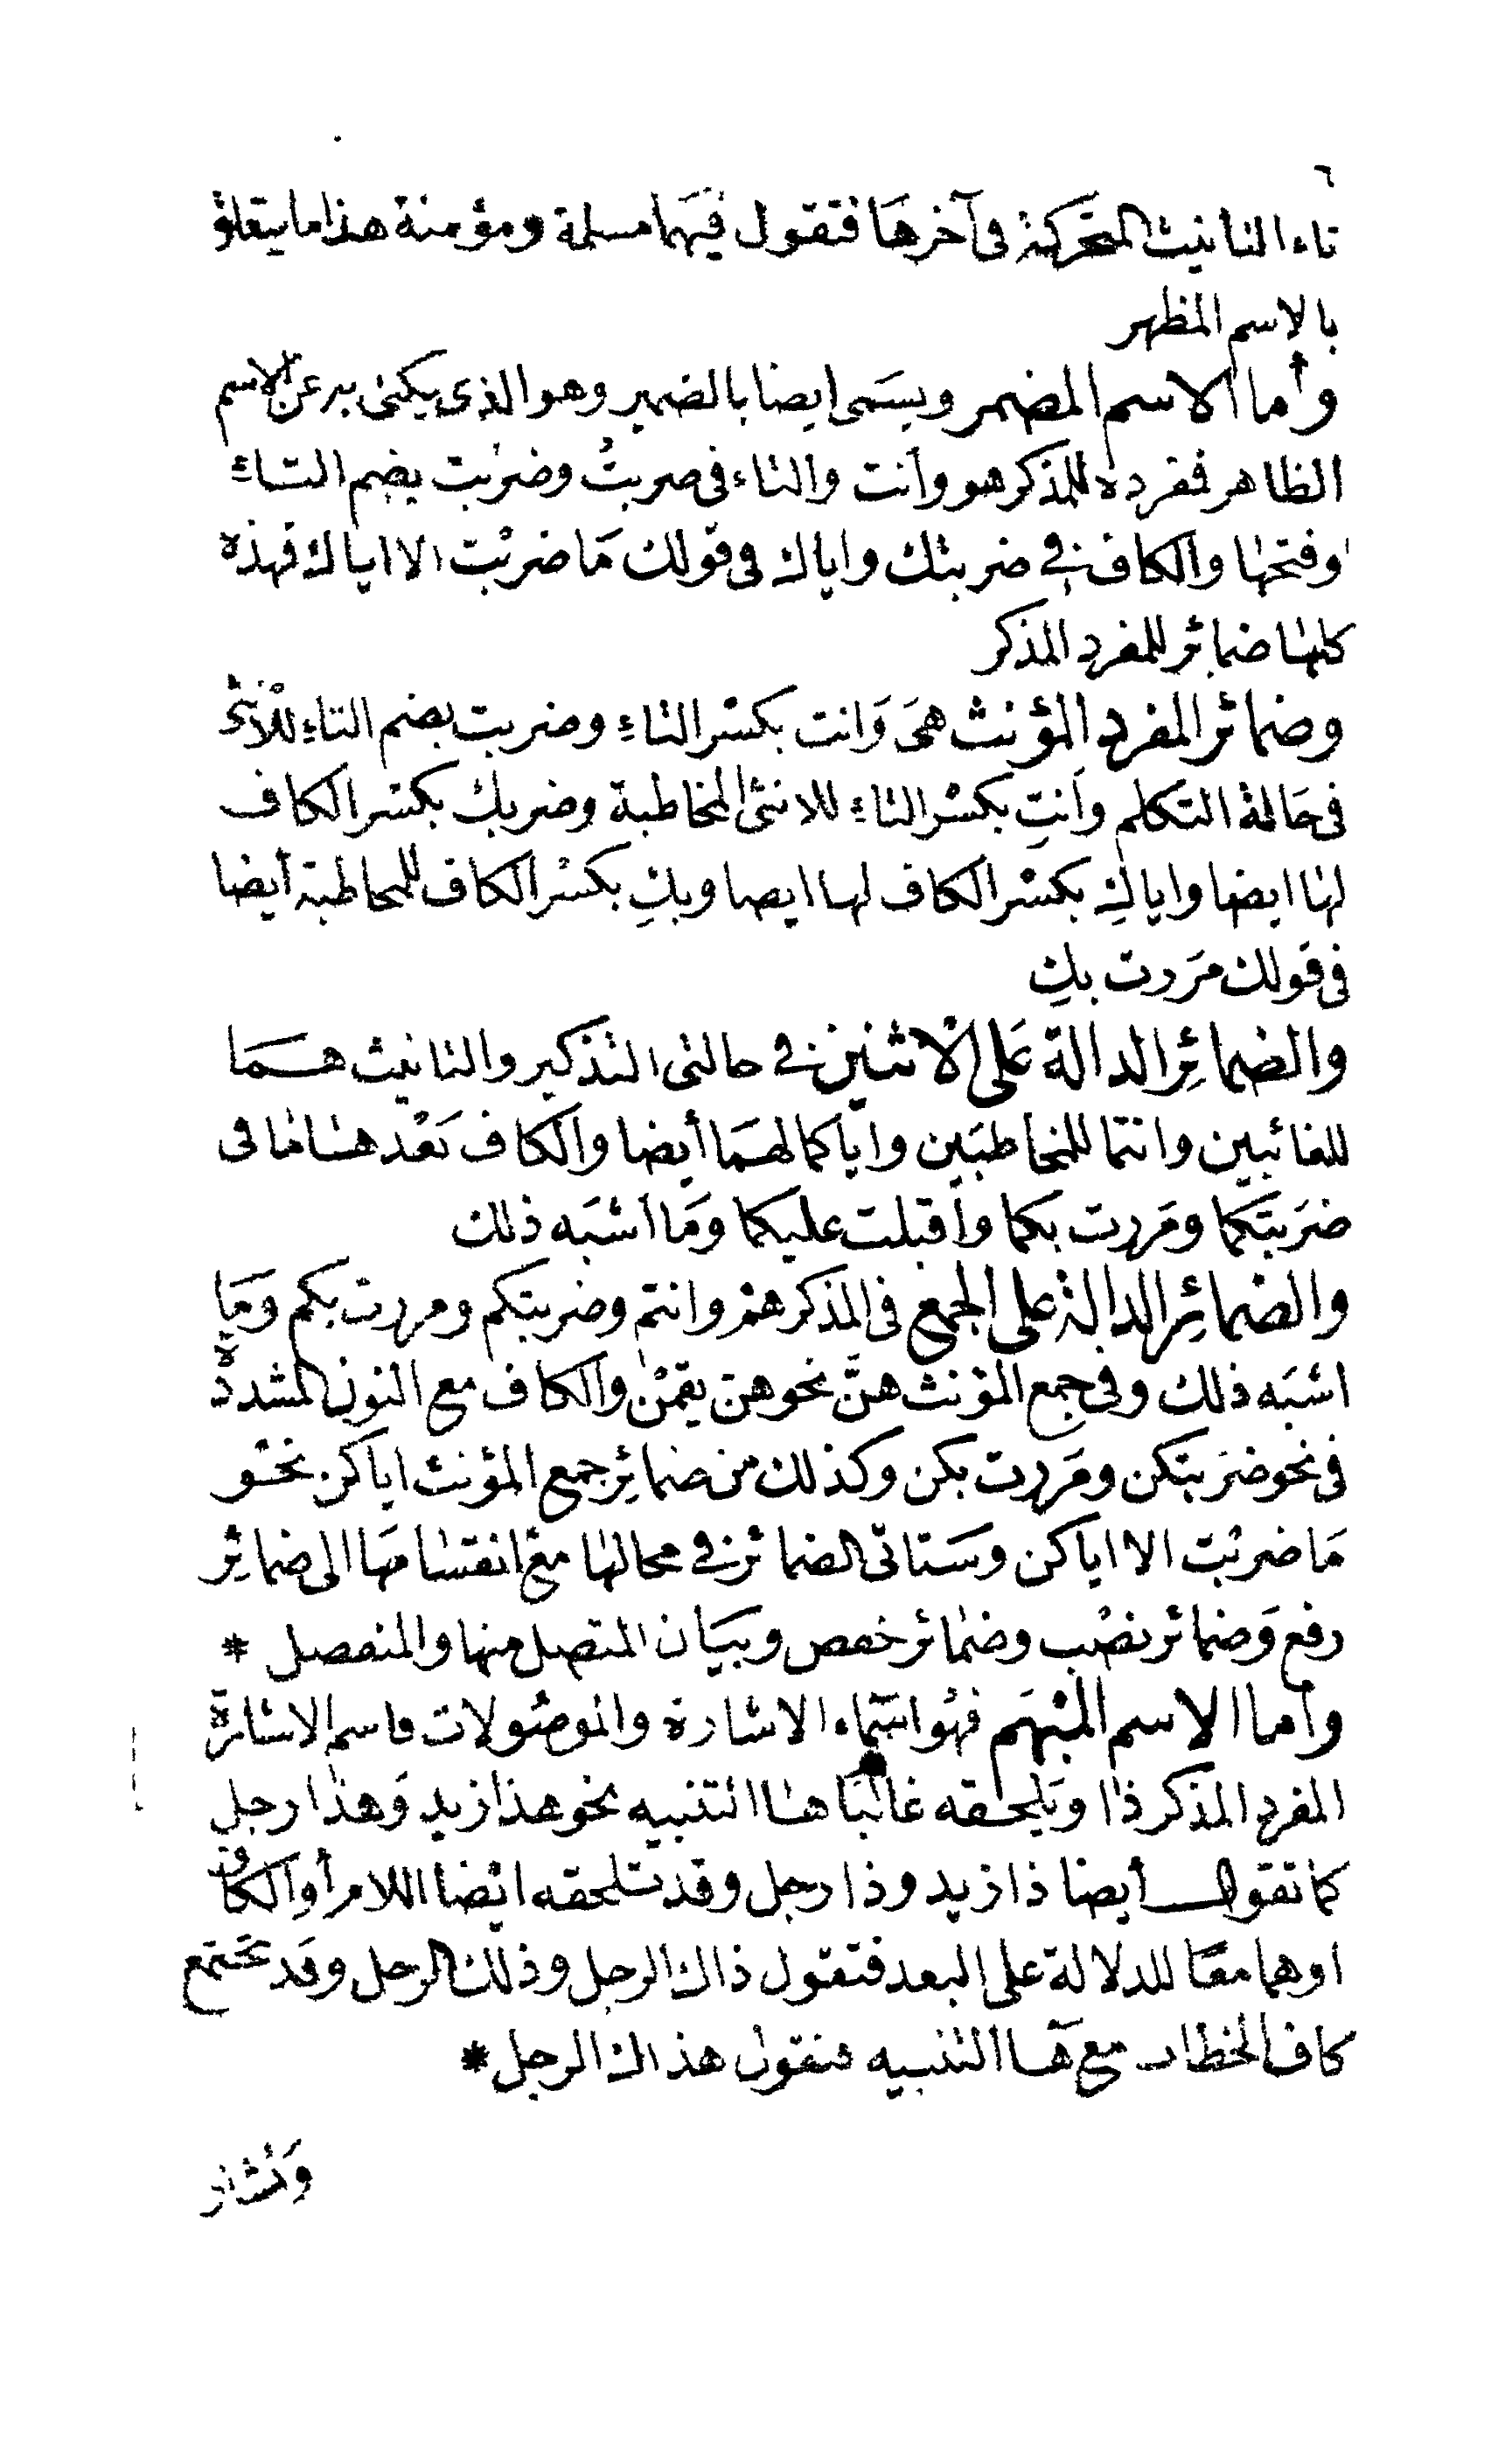 ٦
تاء التانيث المتحركة فى آخرهَا فتقول فيهَما مسلمة ومؤمنة هذا ما يتعلق
بالاسم المظهر
وأما الاسم المضمر ويسَمى ايضا بالضمير وهو الذى يكنى به عن الاسم
الظاهر فمفرده للمذكر هو وأنت والتاء فى ضربتُ وضربت بضم التاء
وفتحها والكاف فى ضربتك واياك فى قولك مَا ضربْت الا اياك فهذه
كلها ضمائر للمفرد المذكر
وضمائر المفرد المؤنث هىَ وَانت بكسْر التاءِ وضربت بضم التاءِ للأنثى
فى حَالة التكلم وأنتِ بكسْر التاءِ للانثى المخاطبة وضربك بكسْر الكاف
لها ايضا واياكِ بكسْر الكاف لها ايضا وبكِ بكسْر الكاف للمخاطبة أيضا
فى قولك مَررت بكِ
والضمائِر الدالة عَلى الاثنين فى حالتى التذكير والتانيث همَا
للغائبين وانتما للمخاطبَين واياكما لهمَا أيضا والكاف بَعْدهَا ما فى
ضرَبتَكما ومَررت بكما وأقبلت عليكما ومَا اشبَه ذلك
والضمائِر الدالة على الجمع فى المذكر همْ وانتم وضربتكم ومررت بكم ومَا
اشبَه ذلك وفى جمع المؤنث هنَّ نحو هن يقمْن والكاف مع النون المشددة
فى نحو ضرَبتكن ومَررت بكن وكذلك من ضمائِر جمع المؤنث اياكن نحْو
مَا ضربْت الا اياكن وسَتاتى الضمائر فى محالها معَ انقسَامهَا الى ضمائِر
رفع وَضمائر نصْب وضمائر خفص وبيَان المتصل منها والمنفصل *
وأما الاسم المبْهَم فهُو اسَماء الاشارة والموصُولات فاسم الاشارة
المفرد المذكر ذا ويَلحقه غالبَا ها التنبيه نحو هذا زيد وَهذا رجل
كما تقول أيضا ذا زيد وذا رجل وقد تلحقه ايْضا اللام أو الكاف
اوهما معًا للدلالة على البعد فتقول ذاك الرجل وذلك الرجل وقَد تجَتمع
كاف الخطاب مع هَا التنبيه فتقول هذاك الرجل *